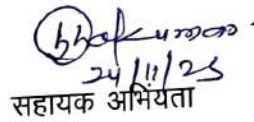 24/11/25
सहायक अभियंता